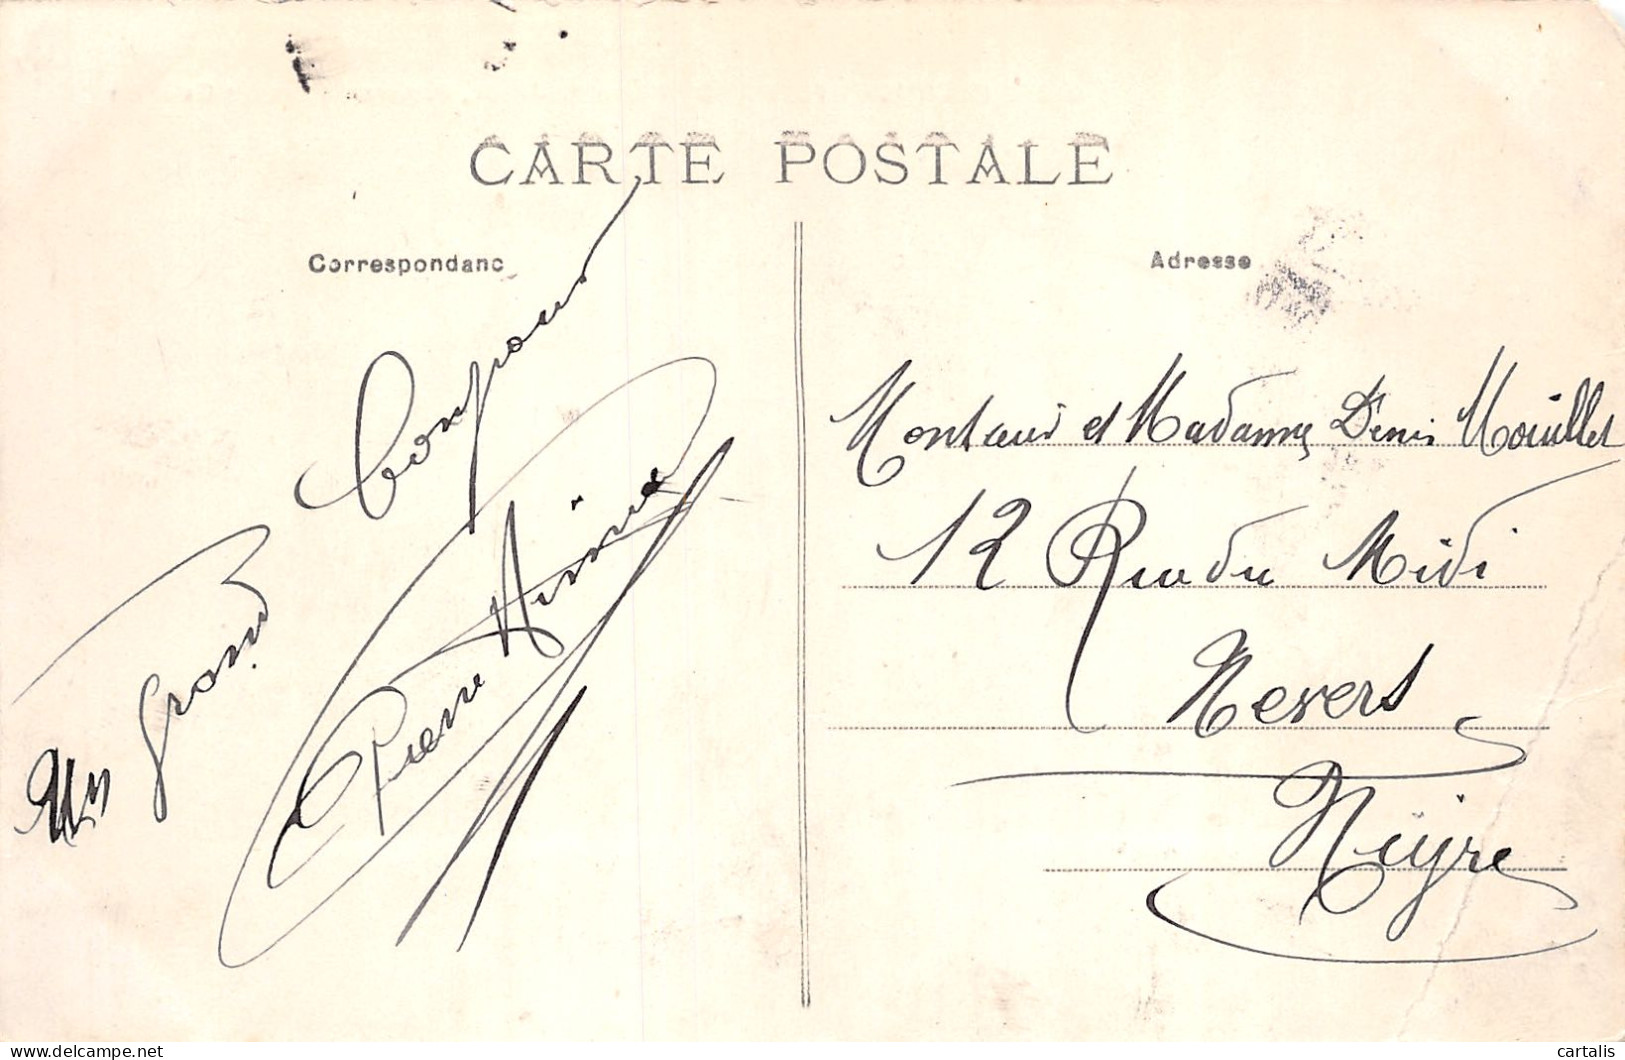 CARTE POSTALE
Correspondanc
Adresse
Un grand bonjour
Pierre Aimée
Monsieur et Madame Denis Mouillet
12 Rue du Midi
Nevers
Nièvre
delcampe.net
cartalis